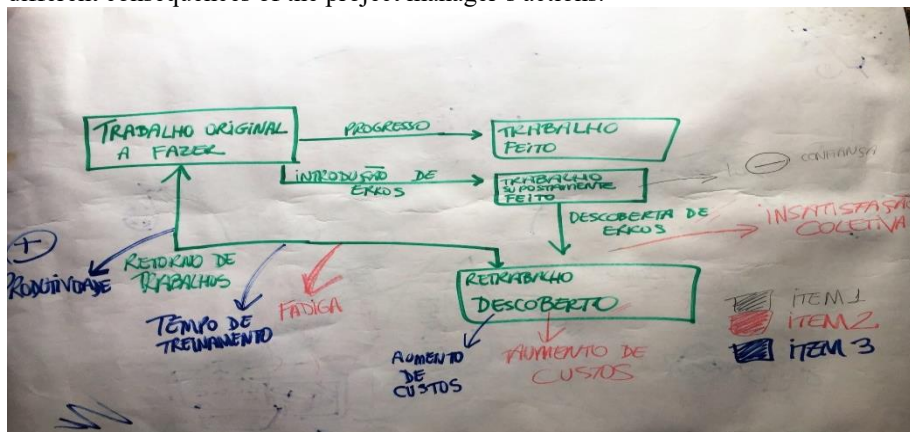 different consequences of the project manager's actions.
TRABALHO ORIGINAL
A FAZER
PROGRESSO
TRABALHO
FEITO
INTRODUÇÃO DE
ERROS
TRABALHO
SUPOSTAMENTE
FEITO
CONFIANSA
DESCOBERTA DE
ERROS
INSATISFAÇÃO
COLETIVA
+
PRODUTIVDADE
RETORNO DE
TRABALHOS
TEMPO DE
TREINAMENTO
FADIGA
RETRABALHO
DESCOBERTO
AUMENTO
DE
CUSTOS
AUMENTO DE
CUSTOS
ITEM 1
ITEM 2
ITEM 3